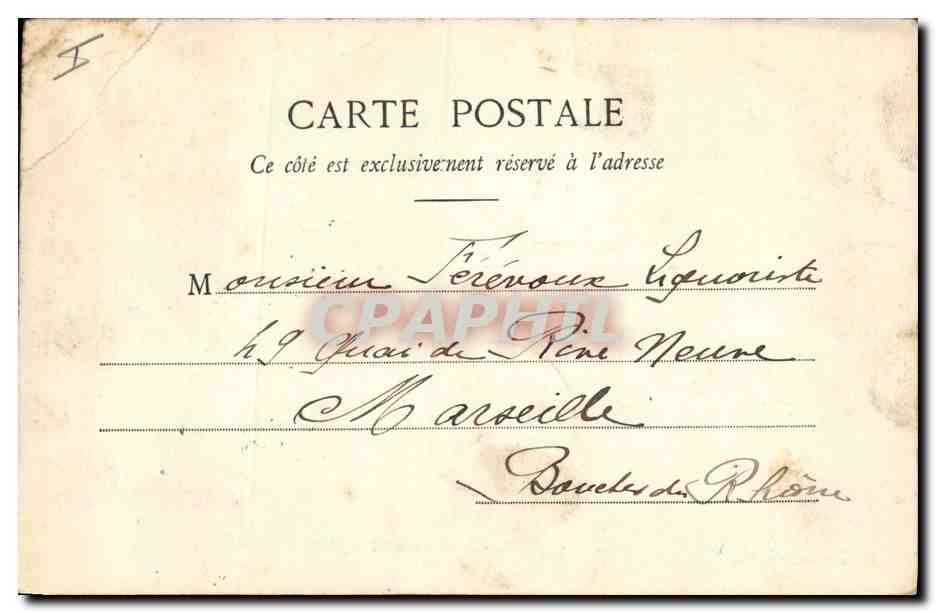 I
CARTE POSTALE
Ce côté est exclusivement réservé à l'adresse
Monsieur Férévoux Liquoriste
CPAPHIL
49 Quai de Rive Neuve
Marseille
Bouches du Rhône